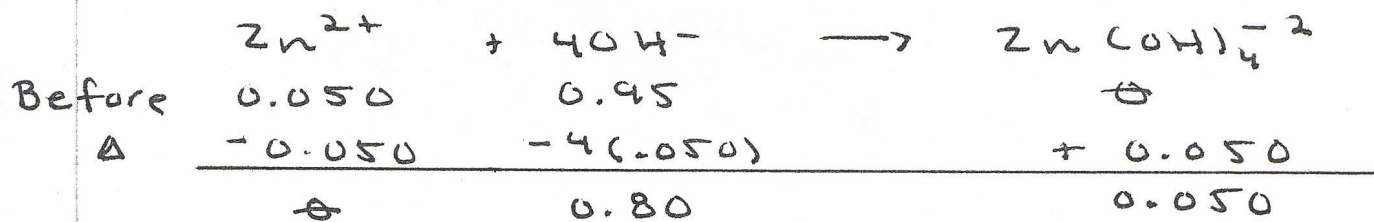 Zn²⁺ + 4OH⁻ ⟶ Zn(OH)₄⁻²
Before 0.050 0.95 0
Δ -0.050 -4(.050) + 0.050
0 0.80 0.050